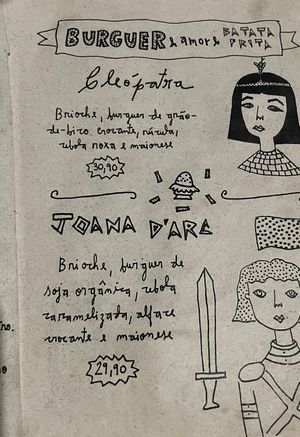 BURGUER & amor & BATATA FRITA
Cleópatra
Brioche, burguer de grão-
de-bico crocante, rúcula,
cebola roxa e maionese
30,90
JOANA D'ARC
Brioche, burguer de
soja orgânica, cebola
caramelizada, alface
crocante e maionese
29,90